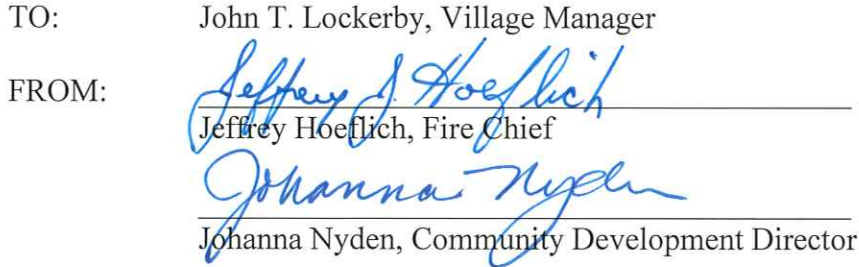 TO: John T. Lockerby, Village Manager
FROM: Jeffrey S. Hoeflich
Jeffrey Hoeflich, Fire Chief
Johanna Nyden
Johanna Nyden, Community Development Director